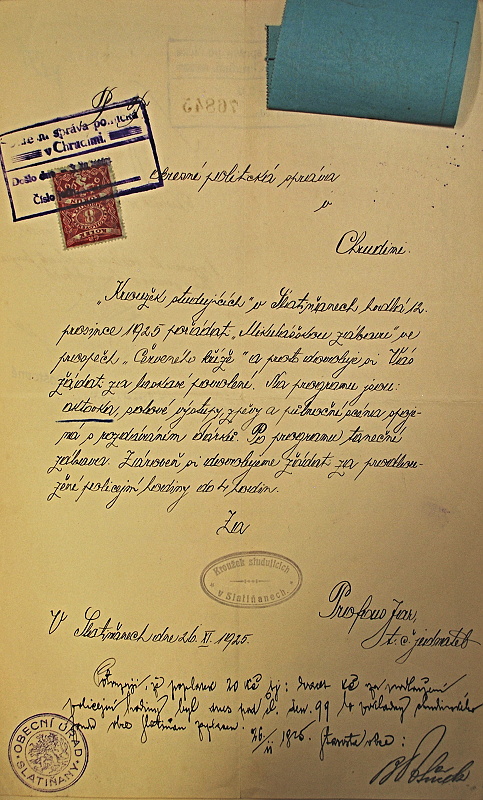 P. T.
okresní správa politická
v Chrudimi.
Došlo dne
Číslo
76845
okresní politická správa
v
Chrudimi.
„Kroužek studujících“ v Slatiňanech hodlá 12.
prosince 1925 pořádat „Mikulášskou zábavu“ ve
prospěch „Červeného kříže“ a proto dovoluje si Vás
žádat za laskavé povolení. Na programu jsou:
aktovka, solové výstupy, zpěvy a půlnoční scéna spoje-
ná s rozdáváním dárků. Po programu taneční
zábava. Zároveň si dovolujeme žádat za prodlou-
žení policejní hodiny do 4 hodin.
Za
Kroužek studujících
v Slatiňanech.
V Slatiňanech dne 26. XI. 1925.
Jar.
t. č. jednatel
Potvrzuji že poplatek 20 Kč tj: dvacet Kč za prodloužení
policejní hodiny byl dnes pod čl. den. 99
obce Slatiňan zaplacen. 26/11 1925. Starosta obce:
OBECNÍ ÚŘAD
SLATIŇANY